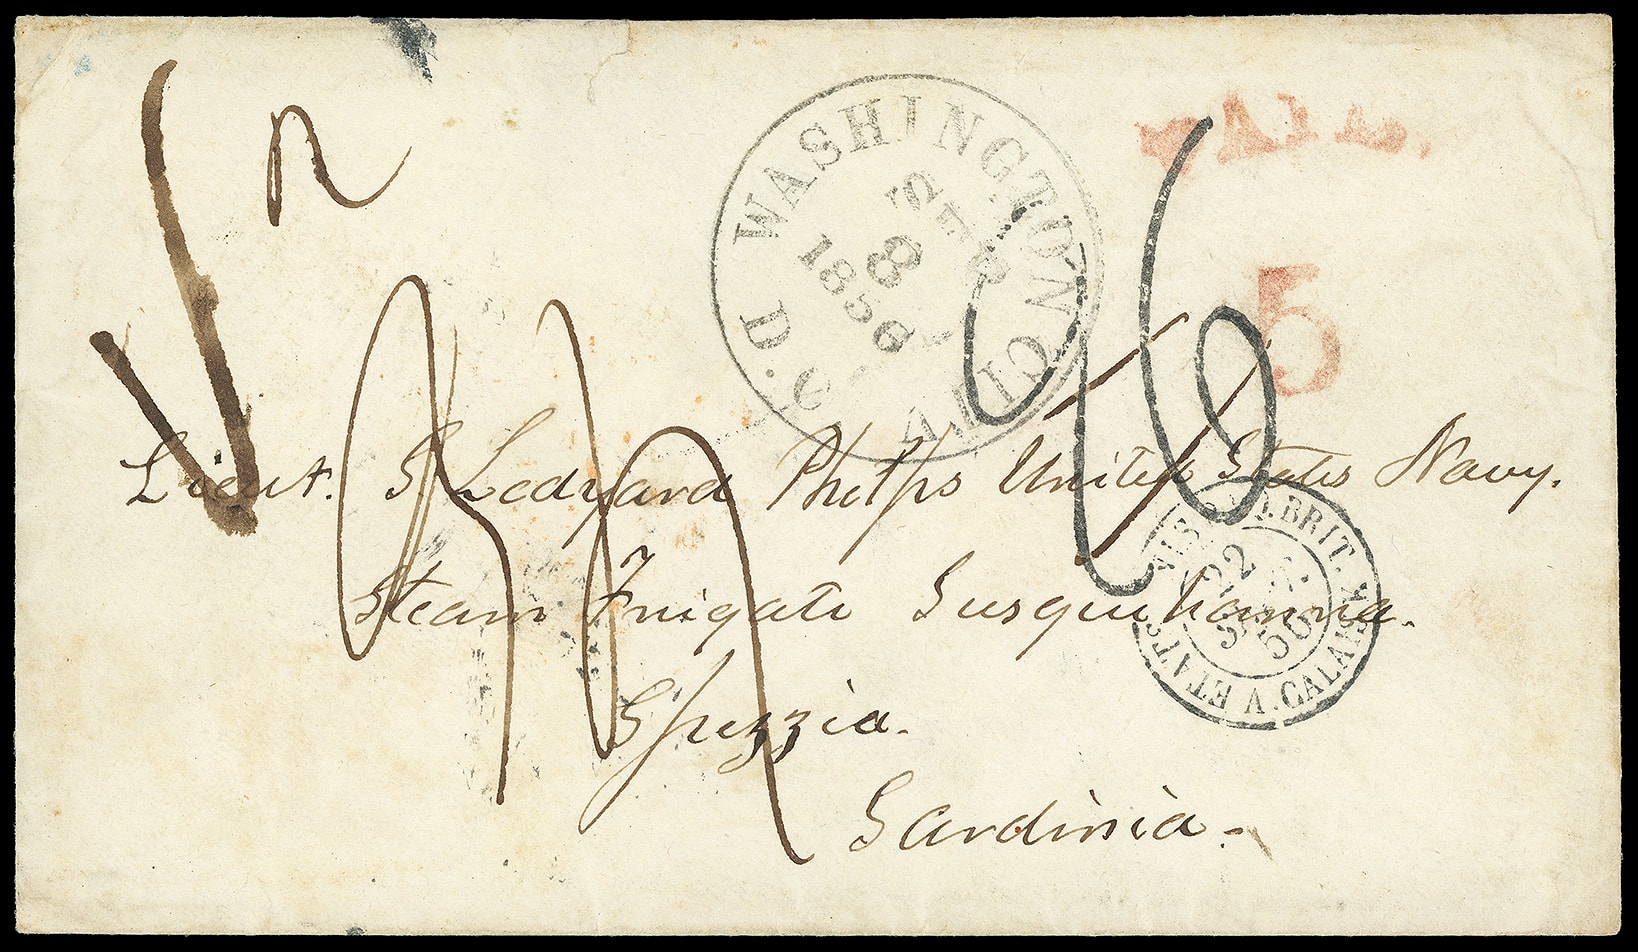 WASHINGTON CITY D. C.
SEP
8
1856
PAID
5
16
Lieut. S. Ledyard Phelps United States Navy.
Steam Frigate Susquehanna.
Spezzia.
Sardinia.
ET.BRIT. V.CALAIS
22
SEPT.
56